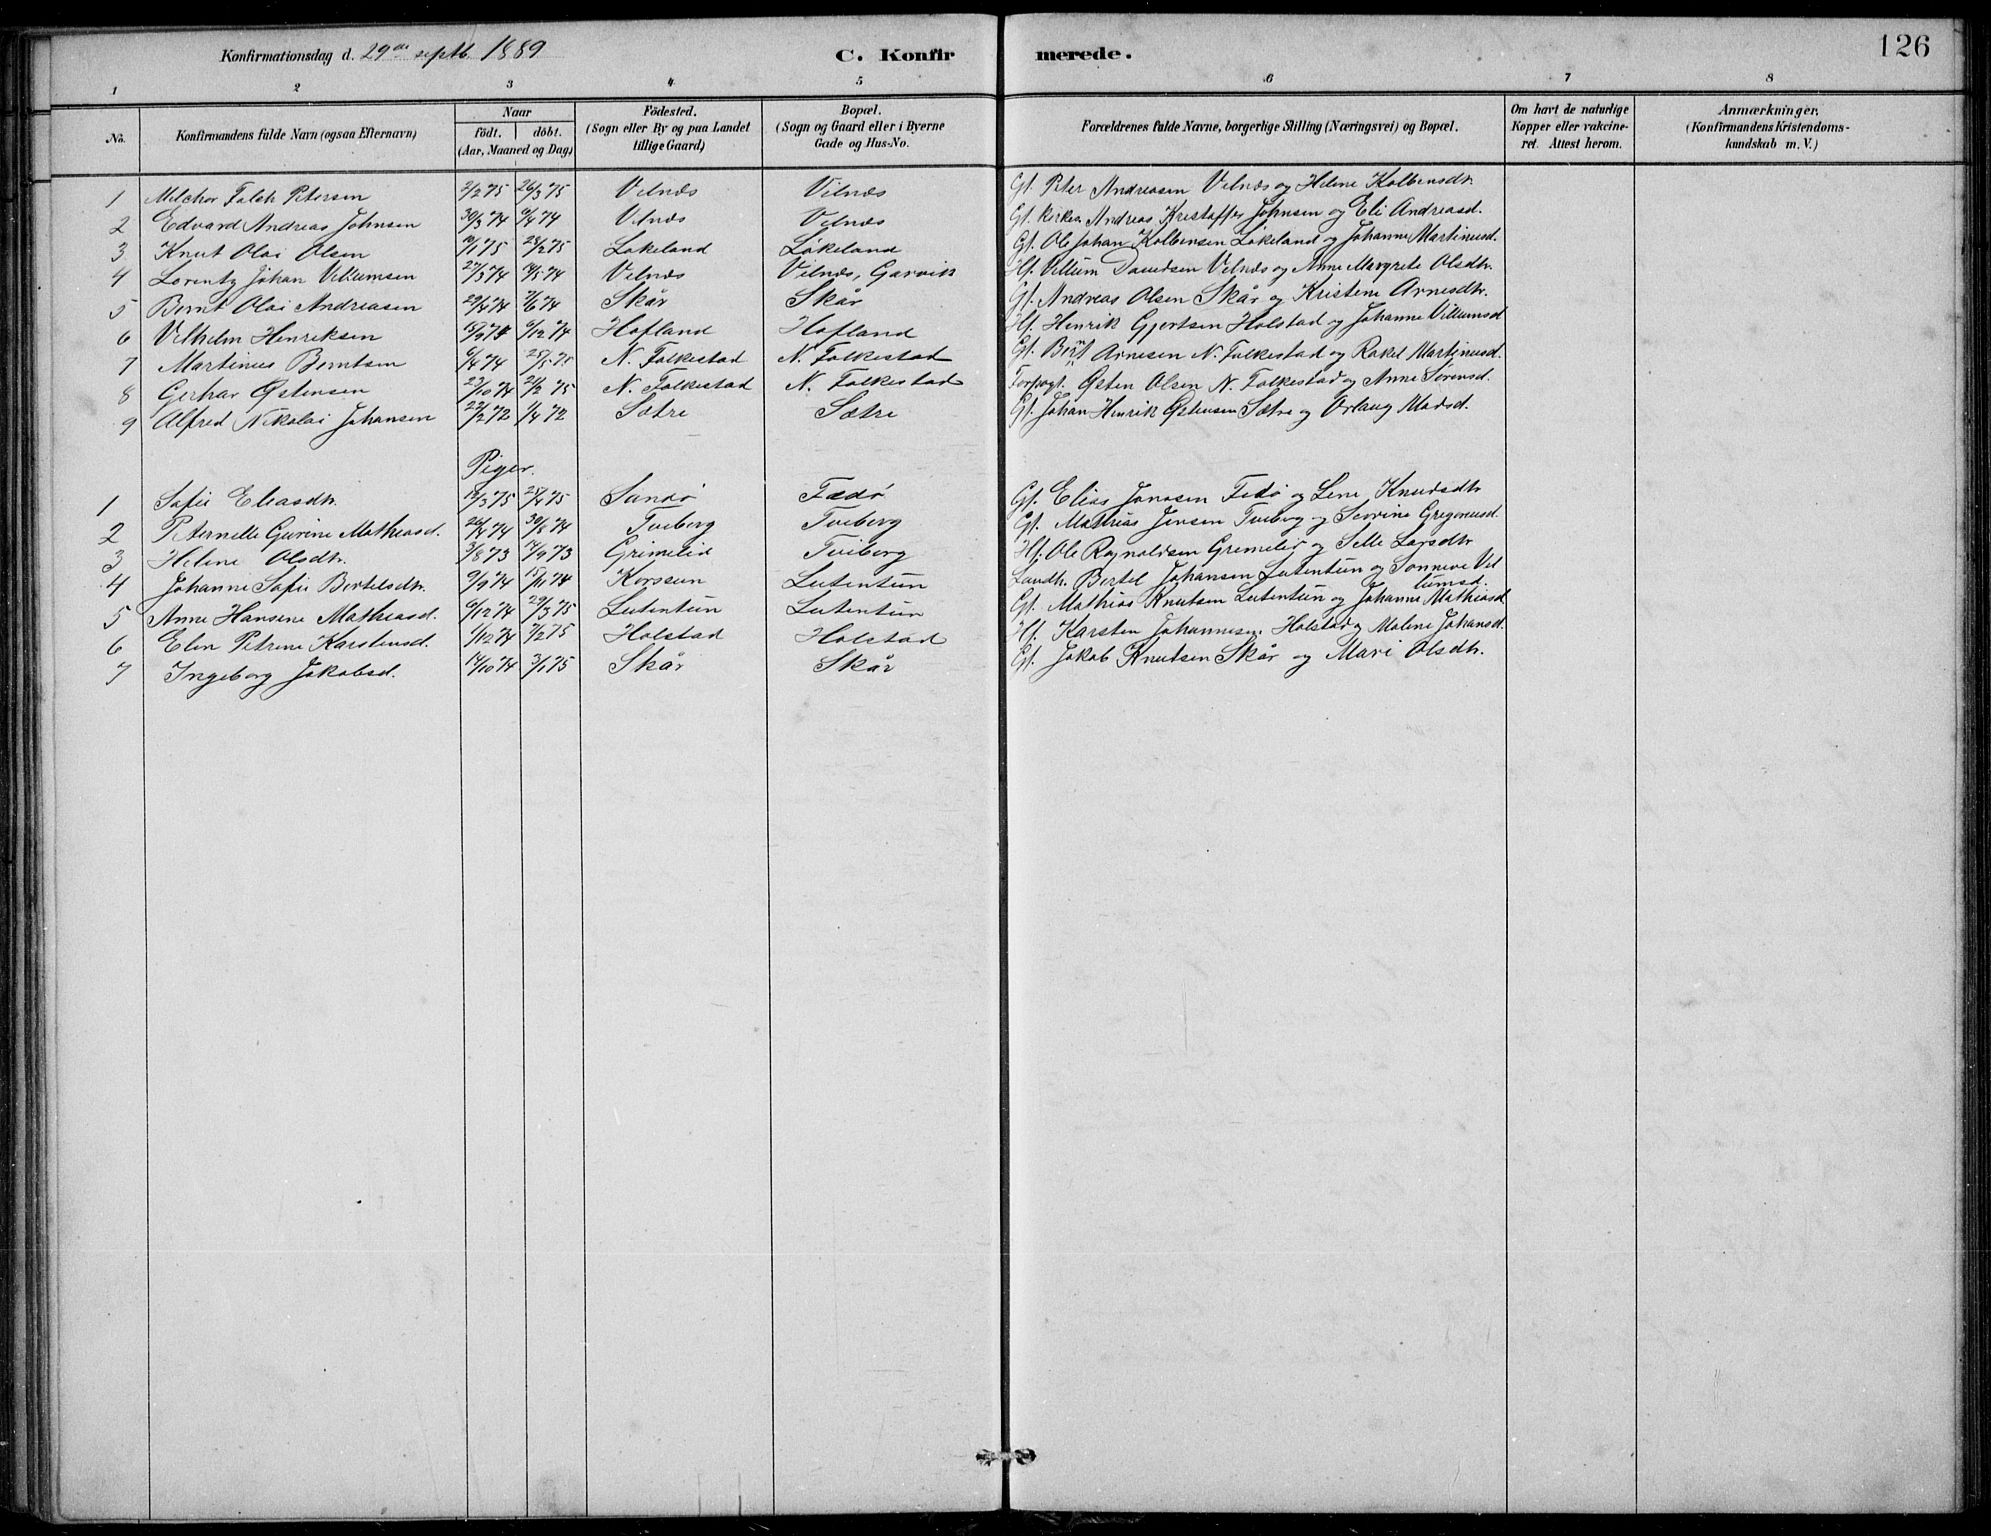 Konfirmationsdag d. 29de septb. 1889 C. Konfirmerede. 126
1 2 3 4 5 6 7 8
No. Konfirmandens fulde Navn (ogsaa Efternavn) Naar födt. döbt. (Aar, Maaned og Dag) Födested. (Sogn eller By og paa Landet tillige Gaard) Bopæl. (Sogn og Gaard eller i Byerne Gade og Hus-No. Forældrenes fulde Navne, borgerlige Stilling (Næringsvei) og Bopæl. Om havt de naturlige Kopper eller vakcineret. Attest herom. Anmærkninger. (Konfirmandens Kristendomskundskab m. V.)
1 Melchor Falch Petersen 2/2 75 26/3 75 Vilnæs Vilnæs Gf. Peter Andreasen Vilnæs og Helene Kolbensdtr.
2 Edvard Andreas Johnsen 30/3 74 6/4 74 Vilnæs Vilnæs Gf. Andreas Kristoffer Johnsen og Eli Andreasd.
3 Knut Olai Olsen 75 75 Løkeland Løkeland Gf. Ole Johan Kolbensen Løkeland og Johanne Martinusd.
4 Lorentz Johan Villumsen 27/3 74 74 Vilnæs Vilnæs, Garvik Hf. Villum Davidsen Vilnæs og Anne Margrete Olsdtr.
5 Bernt Olai Andreasen 29/4 74 7/6 74 Skår Skår Gf. Andreas Olsen Skår og Kristene Arnesdtr.
6 Vilhelm Henriksen 15/9 74 6/12 74 Hofland Hofland Hf. Henrik Gjertsen Holstad og Johanne Villumsd
7 Martinus Berntsen 6/4 74 25/5 75 N. Folkestad N. Folkestad Gf. Arnesen N. Folkestad og Rakel Martinusd.
8 Gerhar Østensen 23/10 74 21/2 75 N. Folkestad N. Folkestad Forpagt. Østen Olsen N. Folkestad og Anne Sørensd.
9 Alfred Nikolai Johansen 22/2 72 1/4 72 Sætre Sætre Gf. Johan Henrik Østensen Sætre og Orlaug Madsd.
Piger.
1 Sofie Eliasdtr. 12/3 75 25/4 75 Sandø Fædø Gf. Elias Jonasen Fedø og Lene Knudsdtr
2 Peternelle Gurine Mathiasd. 26/4 74 74 Tviberg Tviberg Gf. Mathias Jensen Tviberg og Severine Gregoriusd.
3 Helene Olsdtr. 3/8 73 14/9 73 Grimelid Tviberg Hf. Ole Ragnoldsen Gremelid og Sille Larsdtr
4 Johanne Sofie Bertelsdtr. 9/9 74 15/11 74 Korssun Lutentun Landh. Bertel Johansen Lutentun og Sønneve Villumsd.
5 Anne Hansine Mathiasd. 6/12 74 29/3 75 Lutentun Lutentun Gf. Mathias Knutsen Lutentun og Johanne Mathiasd
6 Elen Petrine Karstensd. 1/12 74 7/2 75 Holstad Holstad Hf. Karsten Johannesen Holstad og Malene Johansd.
7 Ingeborg Jakobsd. 14/10 74 3/1 75 Skår Skår Gf. Jakob Knutsen Skår og Mari Olsdtr.